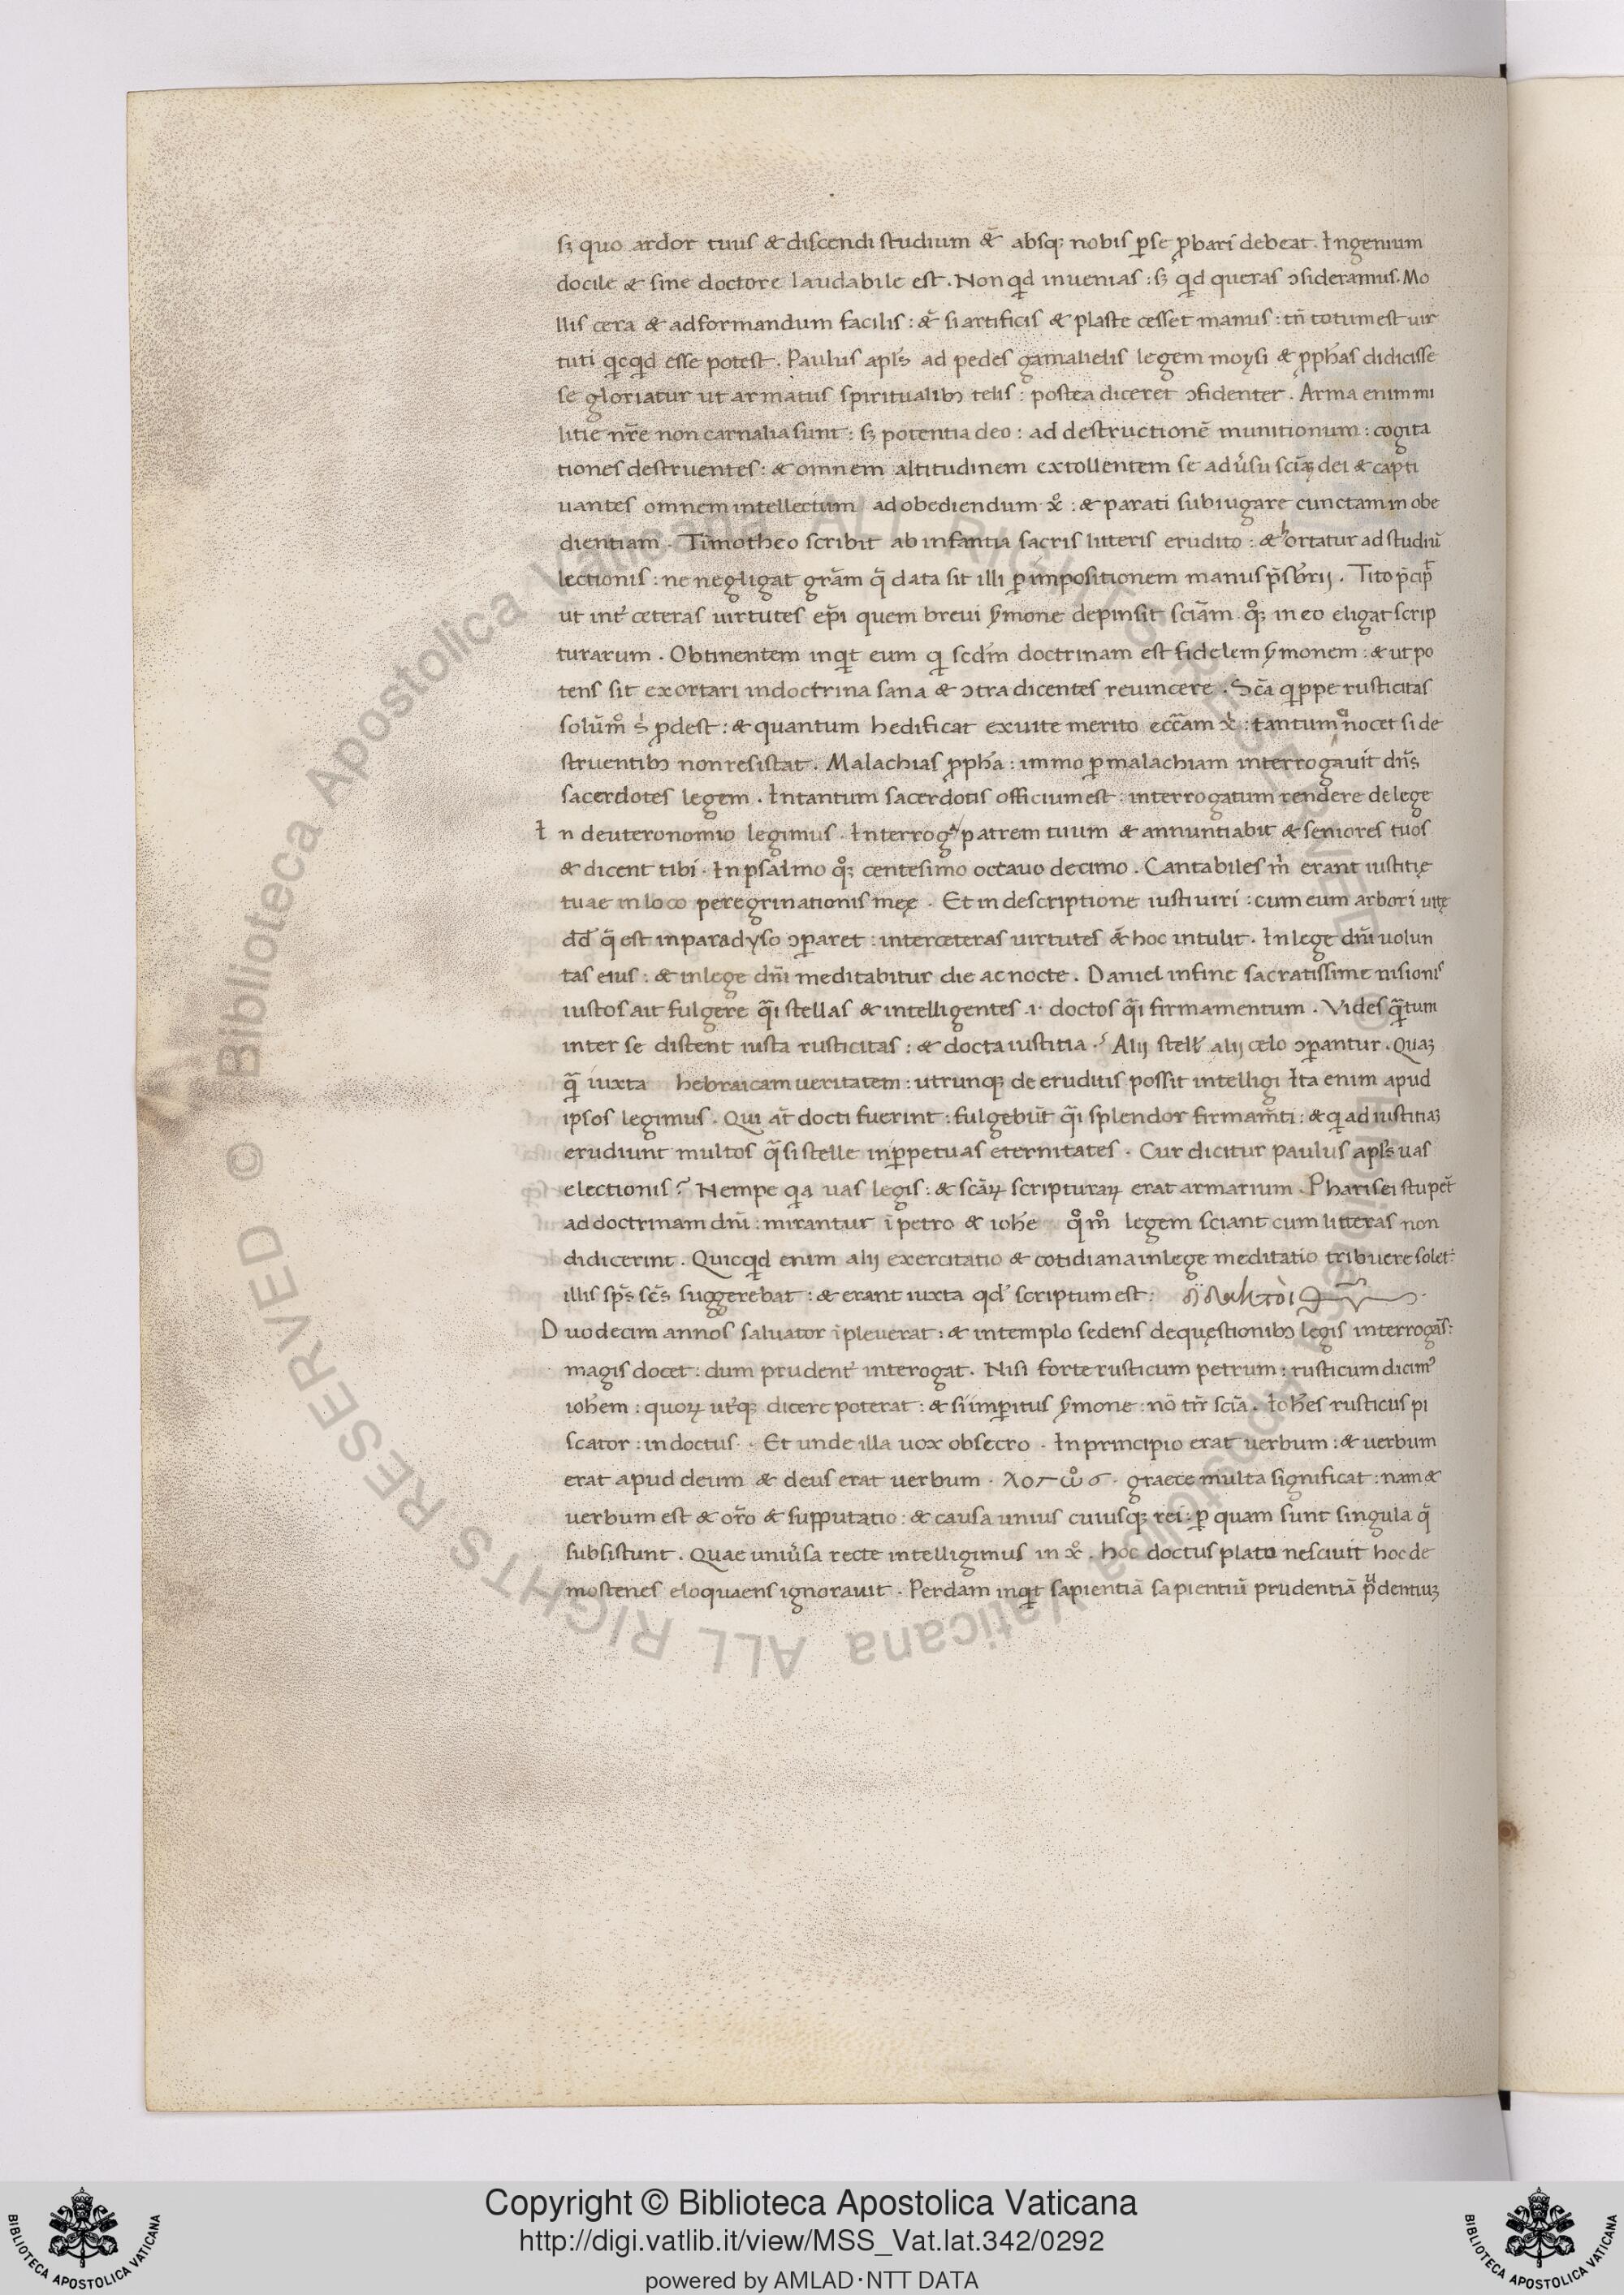 sꝫ quo ardor tuus & discendi studium & absqꝫ nobis ꝑ se ꝓbari debeat. Ingenium
docile & sine doctore laudabile est. Non qd inuenias: sꝫ qd queras ɔsideramus. Mo
llis cera & ad formandum facilis: & si artificis & plaste cesset manus: tn̄ totum est uir
tuti qcqd esse potest. Paulus apl's ad pedes gamalielis legem moysi & ꝓph̄as didicisse
se gloriatur ut armatus spiritualibꝫ telis: postea diceret ɔfidenter. Arma enim mi
litie nr̄e non carnalia sunt: sꝫ potentia deo: ad destructionē munitionum: cogita
tiones destruentes: & omnem altitudinem extollentem se adu'su sciāꝫ dei & capti
uantes omnem intellectum ad obediendum xº: & parati subiugare cunctam in obe
dientiam. Timotheo scribit ab infantia sacris litteris erudito: & hortatur ad studiū
lectionis: ne negligat grām q̄ data sit illi ꝑ impositionem manus p̄sb'rij. Tito p̄cip̄
ut int' ceteras uirtutes ep̄i quem breui s'mone depinsit sciām qºꝫ in eo eligat scrip
turarum. Obtinentem inqt eum q scdm̄ doctrinam est fidelem s'monem: & ut po
tens sit exortari in doctrina sana & ɔtra dicentes reuincere. Scā qppe rusticitas
solūmº s' ꝓdest: & quantum hedificat ex uite merito eccām x': tantum nocet si de
struentibꝫ non resistat. Malachias ꝓph̄a: immo ꝑ malachiam interrogauit dn̄s
sacerdotes legem. Intantum sacerdotis officium est: interrogatum rendere de lege
In deuteronomio legimus. Interroga patrem tuum & annuntiabit & seniores tuos
& dicent tibi. In psalmo qºꝫ centesimo octauo decimo. Cantabiles m' erant iustitię
tuae in loco peregrinationis meę. Et in descriptione iusti uiri: cum eum arbori uitę
dd̄ q̄ est in paradyso ɔꝑaret: inter ceteras uirtutes & hoc intulit. In lege dn̄i uolun
tas eius: & in lege dn̄i meditabitur die ac nocte. Daniel in fine sacratissime uisionis
iustos ait fulgere q̄i stellas & intelligentes .i. doctos q̄i firmamentum. Vides q̄tum
inter se distent iusta rusticitas: & docta iustitia. Alij stell' alij celo ɔꝑantur. Quaꝫ
q̄ iuxta hebraicam ueritatem: utrunqꝫ de eruditis possit intelligi Ita enim apud
ipsos legimus. Qui at̄ docti fuerint: fulgebūt q̄i splendor firmam̄ti: & q ad iustitiaꝫ
erudiunt multos q̄si stelle in ꝑpetuas eternitates. Cur dicitur paulus apl's uas
electionis? Nempe qa uas legis: & scāꝝ scripturaꝝ erat armarium. Pharisei stupēt
ad doctrinam dn̄i: mirantur ī petro & ioh̄e qºmº legem sciant cum litteras non
didicerint. Quicqd enim alij exercitatio & cotidiana in lege meditatio tribuere solet:
illis sp̄s sc̄s suggerebat: & erant iuxta qd' scriptum est:
Duodecim annos saluator īpleuerat: & in templo sedens de quęstionibꝫ legis interrogās:
magis docet: dum prudent' interogat. Nisi forte rusticum petrum: rusticum dicim'
ioh̄em: quoꝝ ut'qꝫ dicere poterat: & si imꝑitus s'mone: nō tn̄ sciā. Ioh̄es rusticus pi
scator: indoctus. Et unde illa uox obsecro. In principio erat uerbum: & uerbum
erat apud deum & deus erat uerbum. λογωσ. graece multa significat: nam &
uerbum est & or̄o & supputatio: & causa unius cuiusqꝫ rei: ꝑ quam sunt singula q̄
subsistunt. Quae uniu'sa recte intelligimus in xº. hoc doctus plato nesciuit hoc de
mostenes eloquaens ignorauit. Perdam inqt sapientiā sapientiū prudentiā p̄dentiuꝫ
© Biblioteca Apostolica Vaticana ALL RIGHTS RESERVED
Copyright © Biblioteca Apostolica Vaticana
http://digi.vatlib.it/view/MSS_Vat.lat.342/0292
powered by AMLAD·NTT DATA
BIBLIOTECA APOSTOLICA VATICANA
BIBLIOTECA APOSTOLICA VATICANA